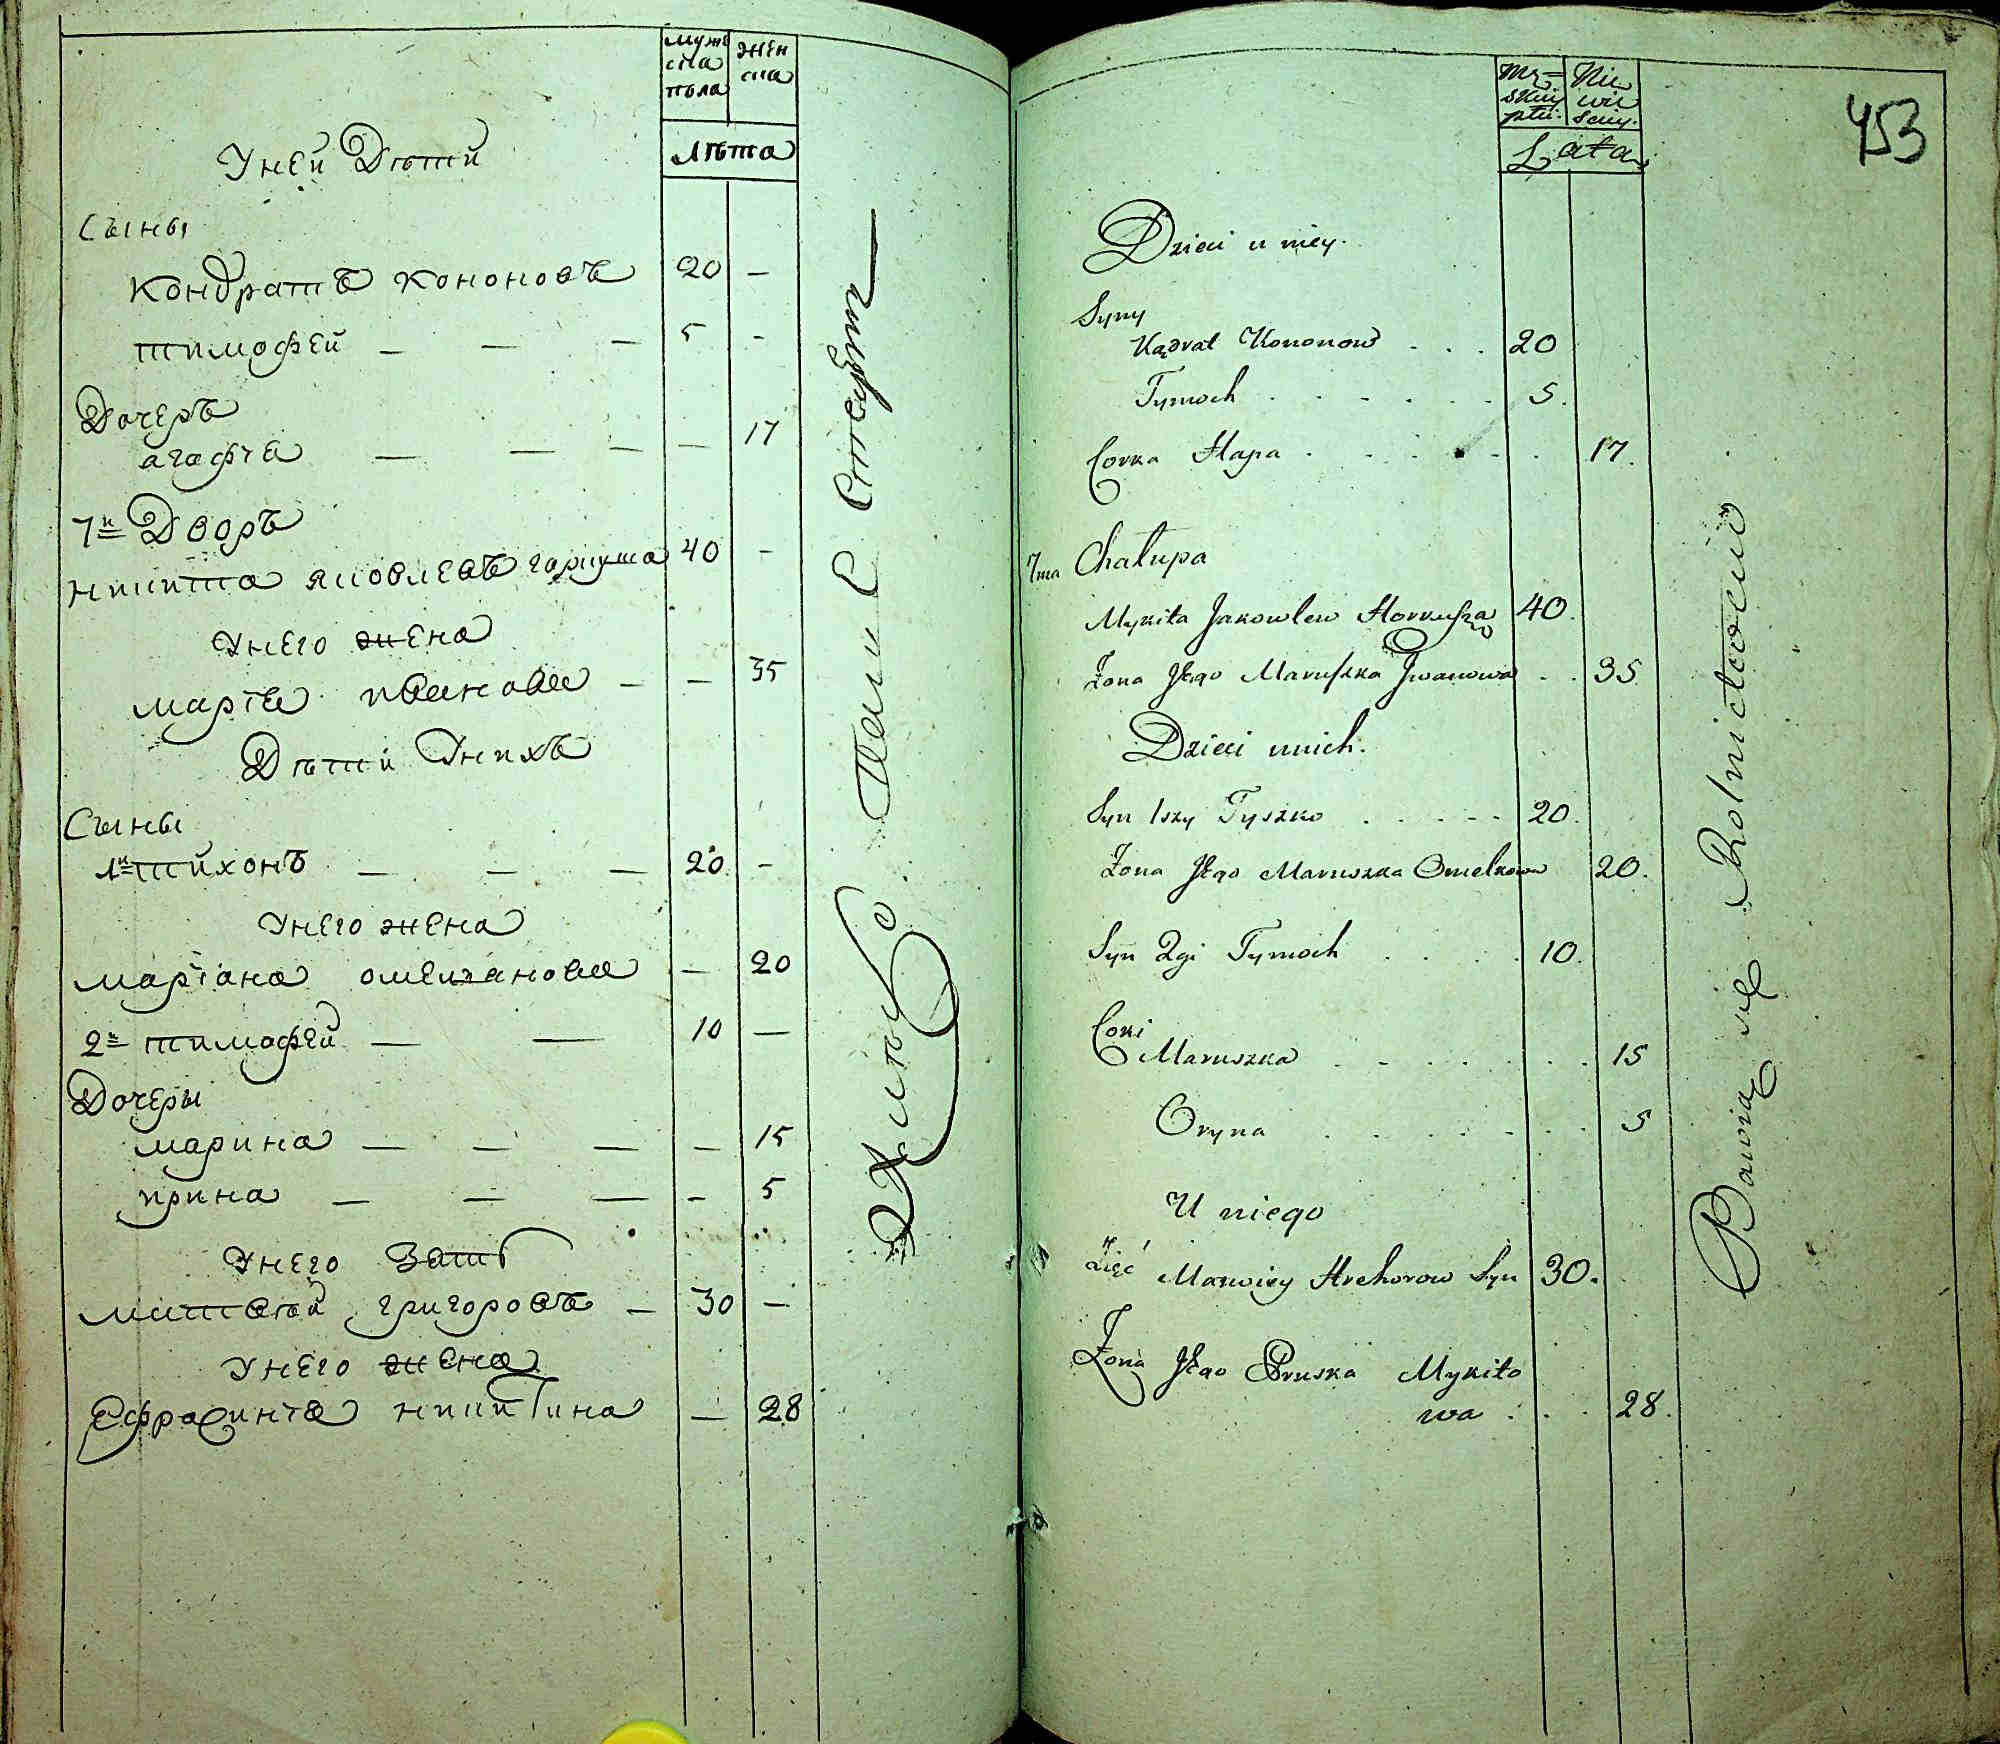 муже
ска
пола
жен
ска
лѣта
Уней Дѣтй
Сыны
Кондратъ Кононовъ 20 —
тимофей — — — 5 -
Дочеръ
агафiя — — — — 17
7й Дворъ
никита яковлевъ гаркуша 40 -
Унего жена
марiя ивановна — — 35
Дѣтй Унихъ
Сыны
1й тихонъ — — — 20 -
Унего жена
марiана омелiановна — 20
2й тимофей — — 10 —
Дочеры
марина — — — — 15
ирина — — — - 5
Унего Зять
матвѣй григоровъ — 30 —
Унего жена
Ефрасинiя никитина — 28
453
Mę=
skiej
płci.
Nie
wie
sciey.
Lata
Dzieci u niey.
Syny
Kądrat Kononow . . . 20
Tymoch . . . . . . 5.
Corka Hapa . . . . . . 17.
7ma Chałupa
Mykita Jakowlew Horkusza 40.
Żona Jego Maruszka Jwanowa . . 35
Dzieci unich.
Syn 1szy Tyszko . . . . . 20.
Żona Jego Maruszka Omelkowa 20.
Syn 2gi Tymoch . . . . 10.
Corki
Maruszka . . . . . . . 15
Oryna . . . . . . . 5
U niego
Zięć Matwiey Hrehorow Syn 30.
Żona Jego Pruska Mykito
wa . . . 28.
Bawią się Rolnictwem